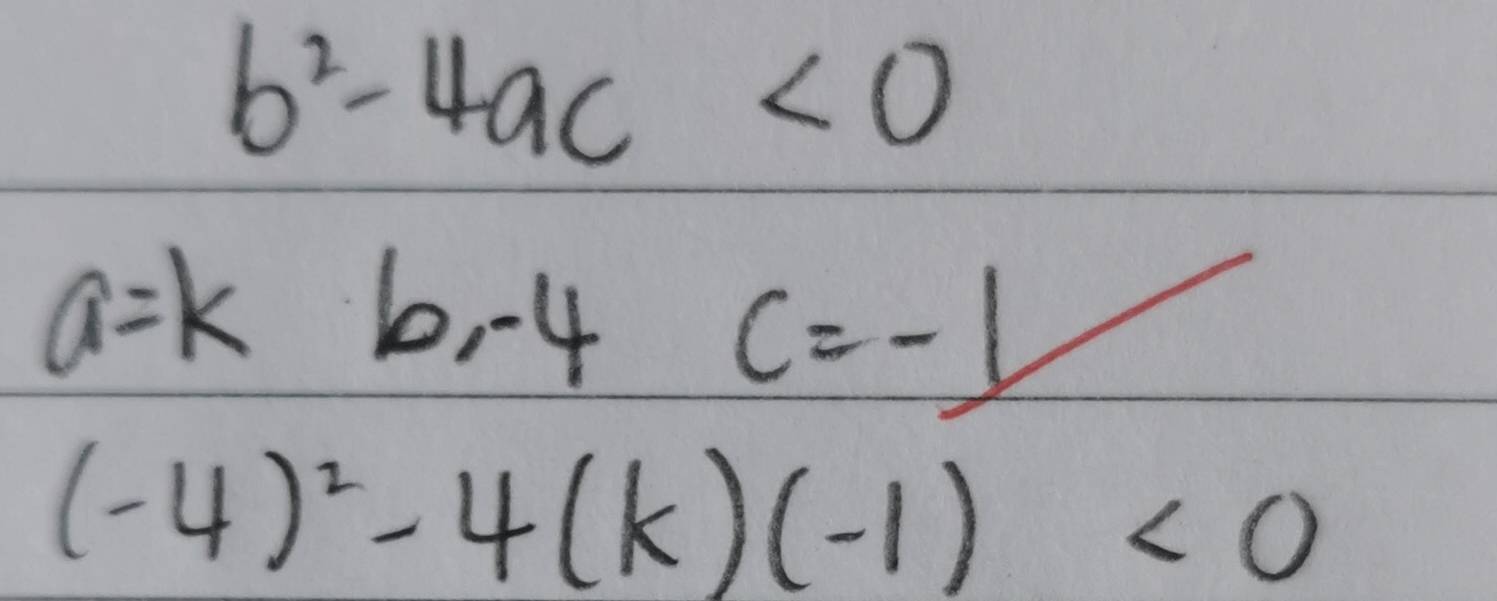 b² - 4ac < 0
a=k b,-4 c=-1
(-4)² - 4(k)(-1) < 0